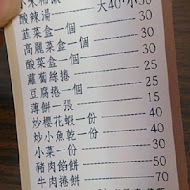 大40·小30
酸辣湯 30
韮菜盒一個 30
高麗菜盒一個 30
酸菜盒一個 30
蘿蔔絲捲 25
豆腐捲一個 25
薄餅一張 15
炒櫻花蝦一份 40
炒小魚乾一份 40
小菜一份 30
豬肉餡餅 50
牛肉捲餅 70